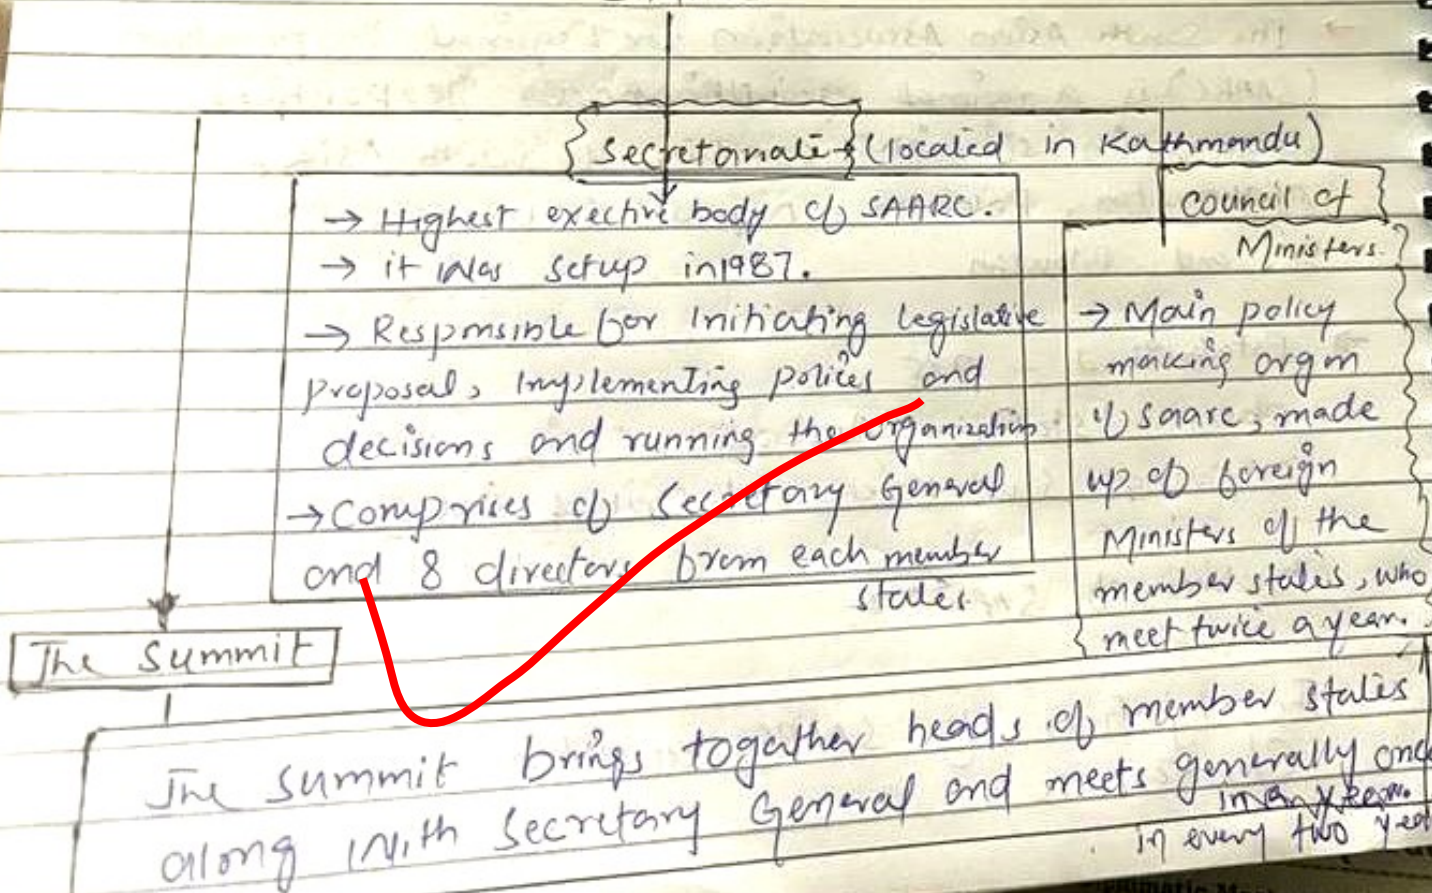 Secretariate (located in Kathmandu)
→ Highest exective body of SAARC.
→ it was setup in 1987.
→ Responsible for Initiating legislative
proposal, Implementing polices and
decisions and running the organization
→ Comprises of Secretary General
and 8 directors from each member
states.
Council of
Ministers.
→ Main policy
making organ
of saarc, made
up of foreign
Ministers of the
member states, who
meet twice a year.
The Summit
The Summit brings togather heads of member states
along with Secretary General and meets generally once
in every two